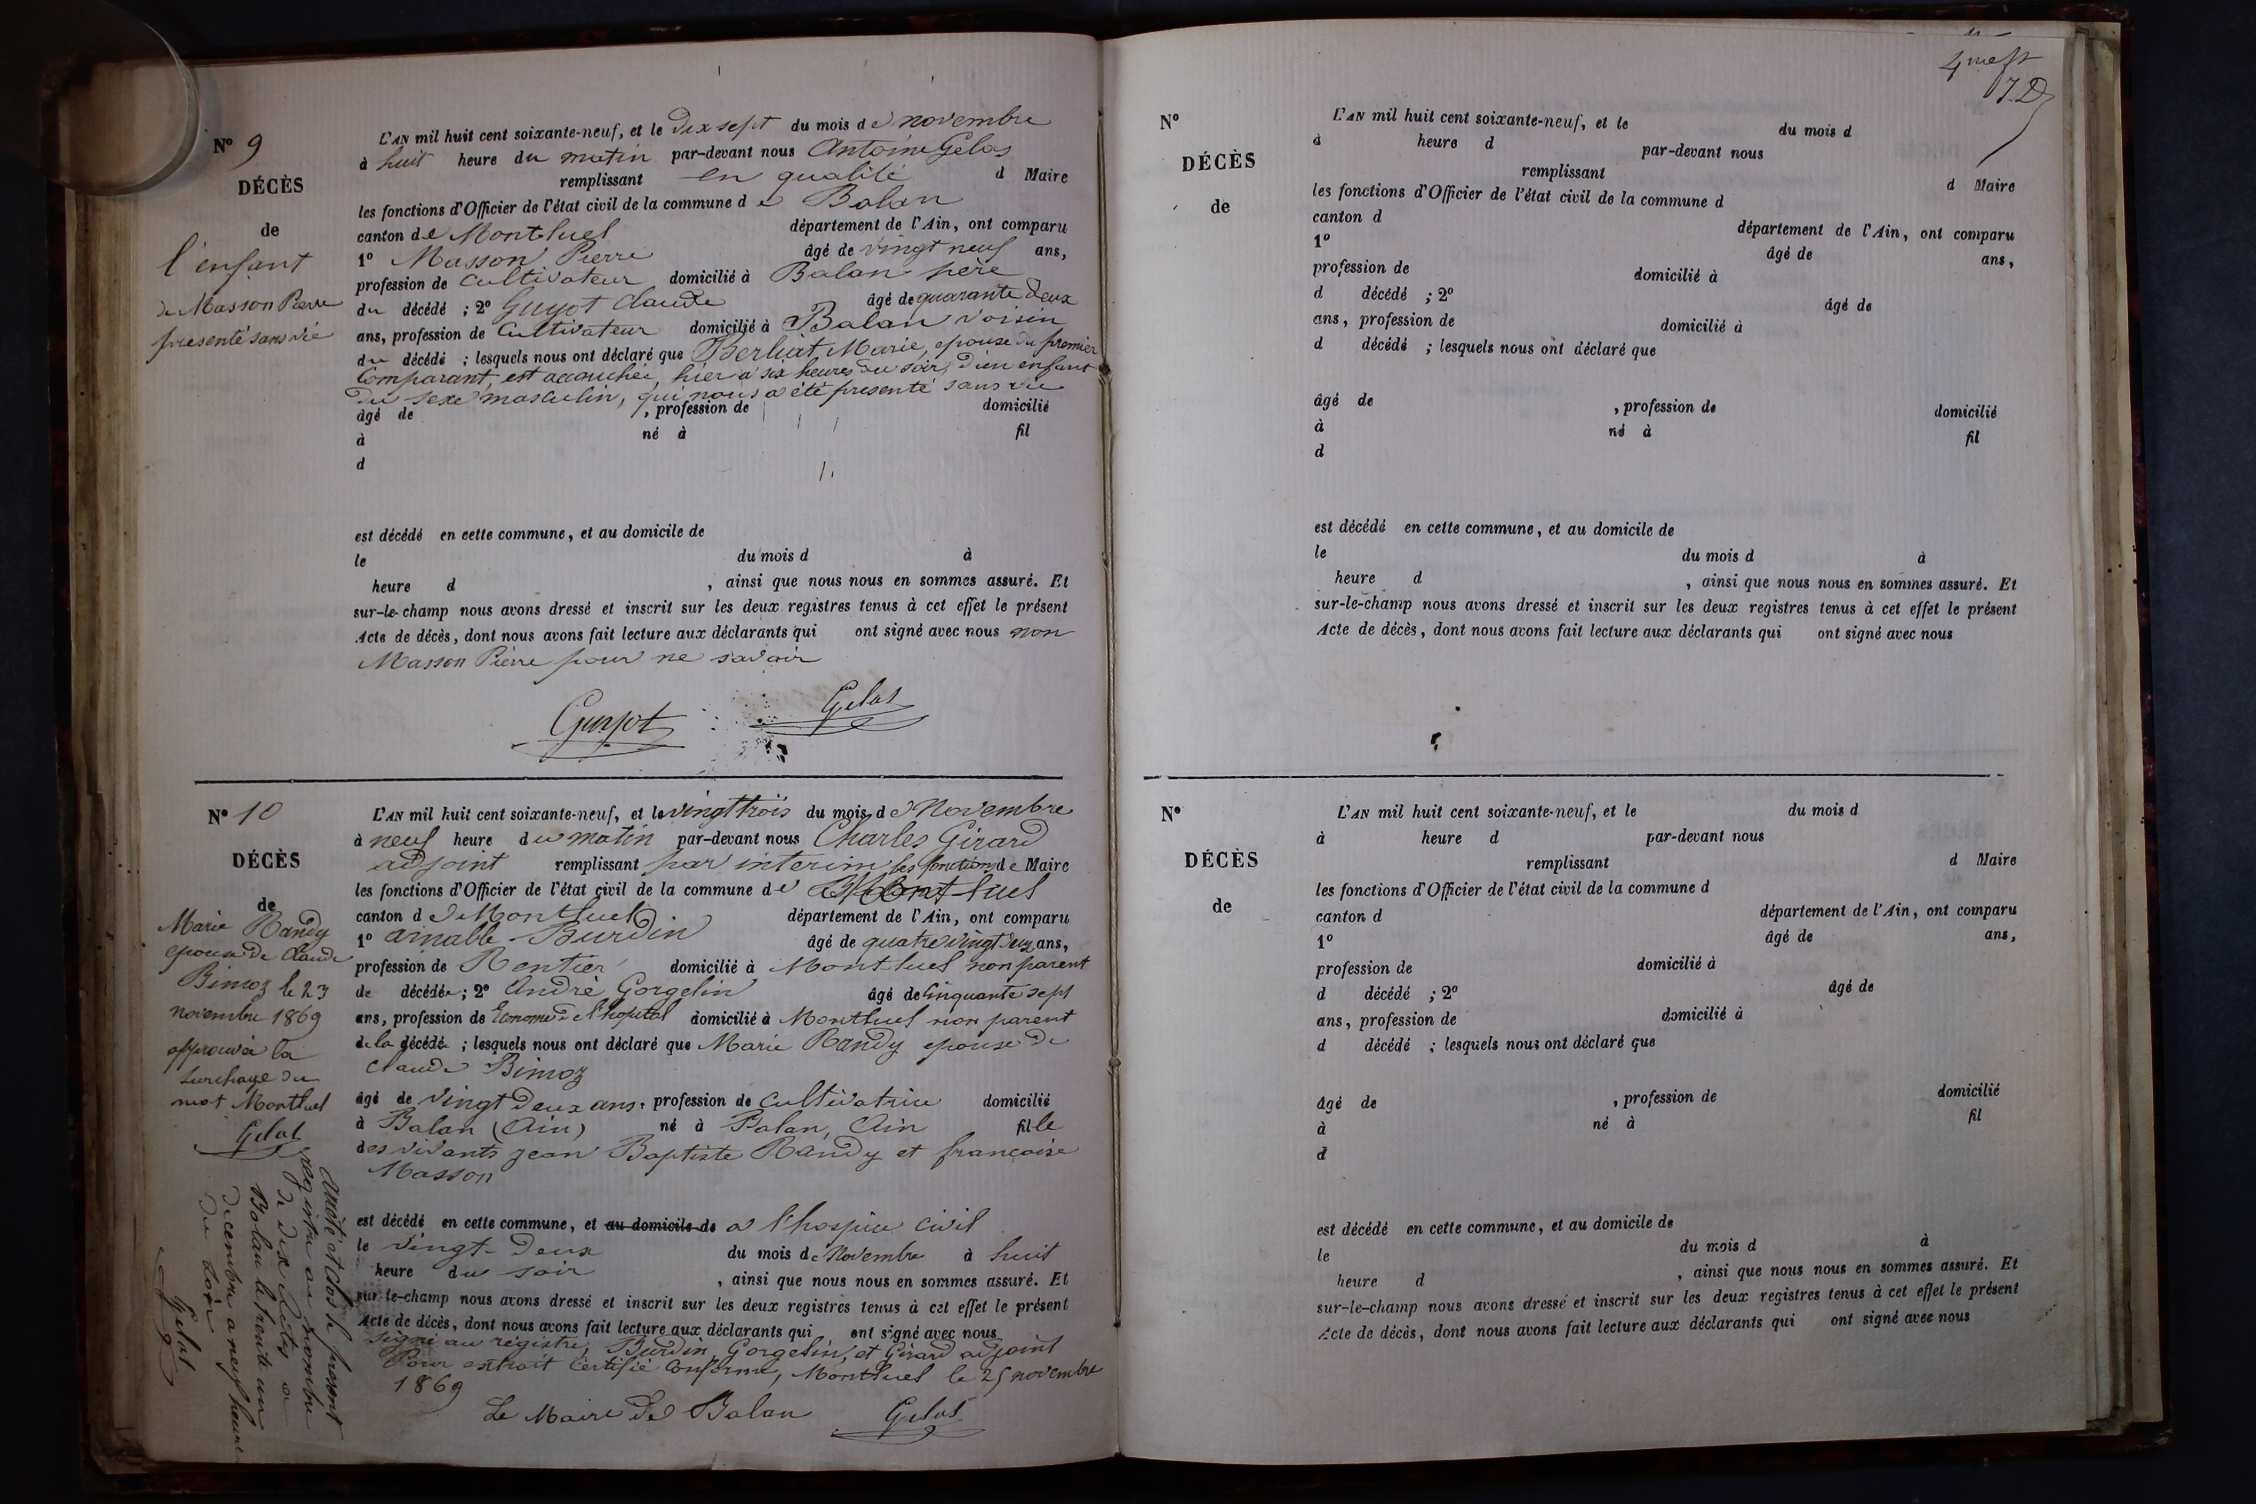 Nº 9
DÉCÈS
de
l'enfant
de Masson Pierre
presenté sans vie
L'AN mil huit cent soixante-neuf, et le dix sept du mois de novembre
à huit heure du matin par-devant nous Antoine Gelas
remplissant en qualité d Maire
les fonctions d'Officier de l'état civil de la commune de Balan
canton de Montluel département de l'Ain, ont comparu
1º Masson Pierre âgé de vingt neuf ans,
profession de cultivateur domicilié à Balan père
du décédé ; 2º Guyot Claude âgé de quarante deux
ans, profession de Cultivateur domicilié à Balan voisin
du décédé ; lesquels nous ont déclaré que Berliat Marie, epouse du premier
Comparant, est accouchée, hier a six heures du soir, d'un enfant
du sexe masculin, qui nous a été presenté sans vie
âgé de , profession de domicilié
à né à fil
d
est décédé en cette commune, et au domicile de
le du mois d à
heure d , ainsi que nous nous en sommes assuré. Et
sur-le-champ nous avons dressé et inscrit sur les deux registres tenus à cet effet le présent
Acte de décès, dont nous avons fait lecture aux déclarants qui ont signé avec nous non
Masson Pierre pour ne savoir
Guyot Gelas
Nº 10
DÉCÈS
de
Marie Randy
epouse de Claude
Bimoz le 23
novembre 1869
approuvé la
surchage du
mot Montluel
Gelas
Arrêté et clos le present
registre au nombre
de dix actes a
Balan le trente un
decembre a neuf heure
du soir
Gelas
L'AN mil huit cent soixante-neuf, et le vingt trois du mois de Novembre
à neuf heure du matin par-devant nous Charles Girard
adjoint remplissant par interim les fonctions de Maire
les fonctions d'Officier de l'état civil de la commune de Montluel
canton de Montluel département de l'Ain, ont comparu
1º aimable Burdin âgé de quatre vingt deux ans,
profession de Rentier domicilié à Montluel non parent
de décédée ; 2º André Gorgelin âgé de cinquante sept
ans, profession de Econome de l'hopital domicilié à Montluel non parent
de la décédé ; lesquels nous ont déclaré que Marie Randy epouse de
Claude Bimoz
âgé de vingt deux ans, profession de cultivatrice domicilié
à Balan (Ain) né à Balan, Ain fille
des vivants jean Baptiste Randy et françoise
Masson
est décédé en cette commune, et au domicile de a l'hospice civil
le vingt-deux du mois de Novembre à huit
heure du soir , ainsi que nous nous en sommes assuré. Et
sur-le-champ nous avons dressé et inscrit sur les deux registres tenus à cet effet le présent
Acte de décès, dont nous avons fait lecture aux déclarants qui ont signé avec nous
signé au régistre, Burdin, Gorgelin, et Girard adjoint
Pour extrait certifié conforme, Montluel le 25 novembre
1869
Le Maire de Balan Gelas
Nº
DÉCÈS
de
L'AN mil huit cent soixante-neuf, et le du mois d
à heure d par-devant nous
remplissant d Maire
les fonctions d'Officier de l'état civil de la commune d
canton d département de l'Ain, ont comparu
1º âgé de ans,
profession de domicilié à
d décédé ; 2º âgé de
ans, profession de domicilié à
d décédé ; lesquels nous ont déclaré que
âgé de , profession de domicilié
à né à fil
d
est décédé en cette commune, et au domicile de
le du mois d à
heure d , ainsi que nous nous en sommes assuré. Et
sur-le-champ nous avons dressé et inscrit sur les deux registres tenus à cet effet le présent
Acte de décès, dont nous avons fait lecture aux déclarants qui ont signé avec nous
Nº
DÉCÈS
de
L'AN mil huit cent soixante-neuf, et le du mois d
à heure d par-devant nous
remplissant d Maire
les fonctions d'Officier de l'état civil de la commune d
canton d département de l'Ain, ont comparu
1º âgé de ans,
profession de domicilié à
d décédé ; 2º âgé de
ans, profession de domicilié à
d décédé ; lesquels nous ont déclaré que
âgé de , profession de domicilié
à né à fil
d
est décédé en cette commune, et au domicile de
le du mois d à
heure d , ainsi que nous nous en sommes assuré. Et
sur-le-champ nous avons dressé et inscrit sur les deux registres tenus à cet effet le présent
Acte de décès, dont nous avons fait lecture aux déclarants qui ont signé avec nous